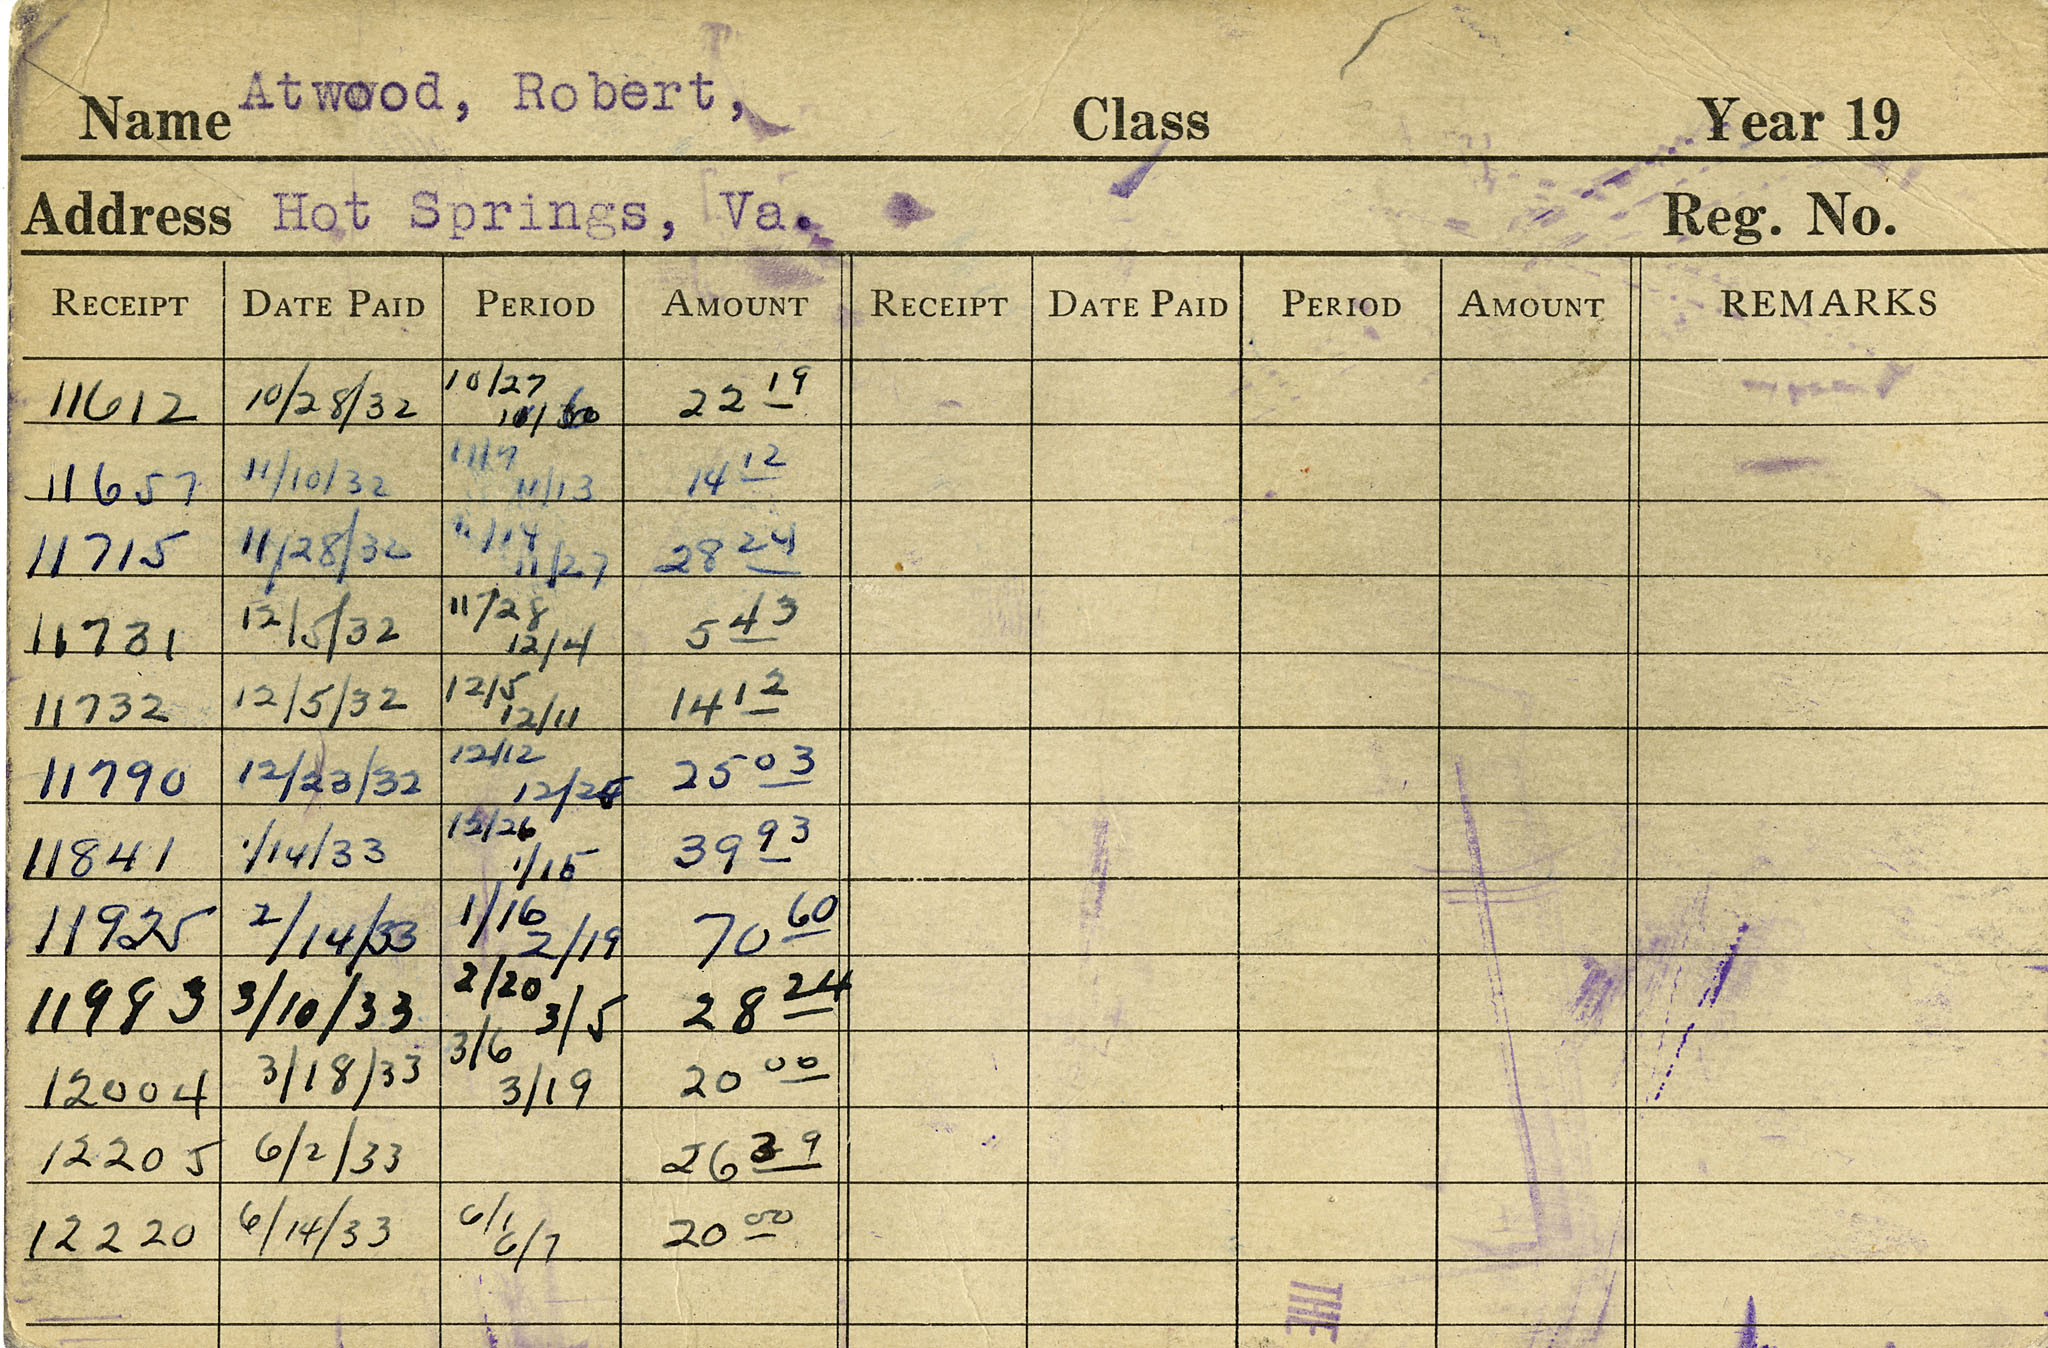 Name Atwood, Robert, Class Year 19
Address Hot Springs, Va. Reg. No.
RECEIPT DATE PAID PERIOD AMOUNT RECEIPT DATE PAID PERIOD AMOUNT REMARKS
11612 10/28/32 10/27 22 19
11657 11/10/32 11/7 11/13 14 12
11715 11/28/32 11/14 11/27 28 24
11731 12/5/32 11/28 12/4 5 43
11732 12/5/32 12/5 12/11 14 12
11790 12/23/32 12/12 25 03
11841 1/14/33 12/26 1/15 39 93
11925 2/14/33 1/16 2/19 70 60
11983 3/10/33 2/20 3/5 28 24
12004 3/18/33 3/6 3/19 20 00
12205 6/2/33 26 39
12220 6/14/33 6/1 6/7 20 00
THE